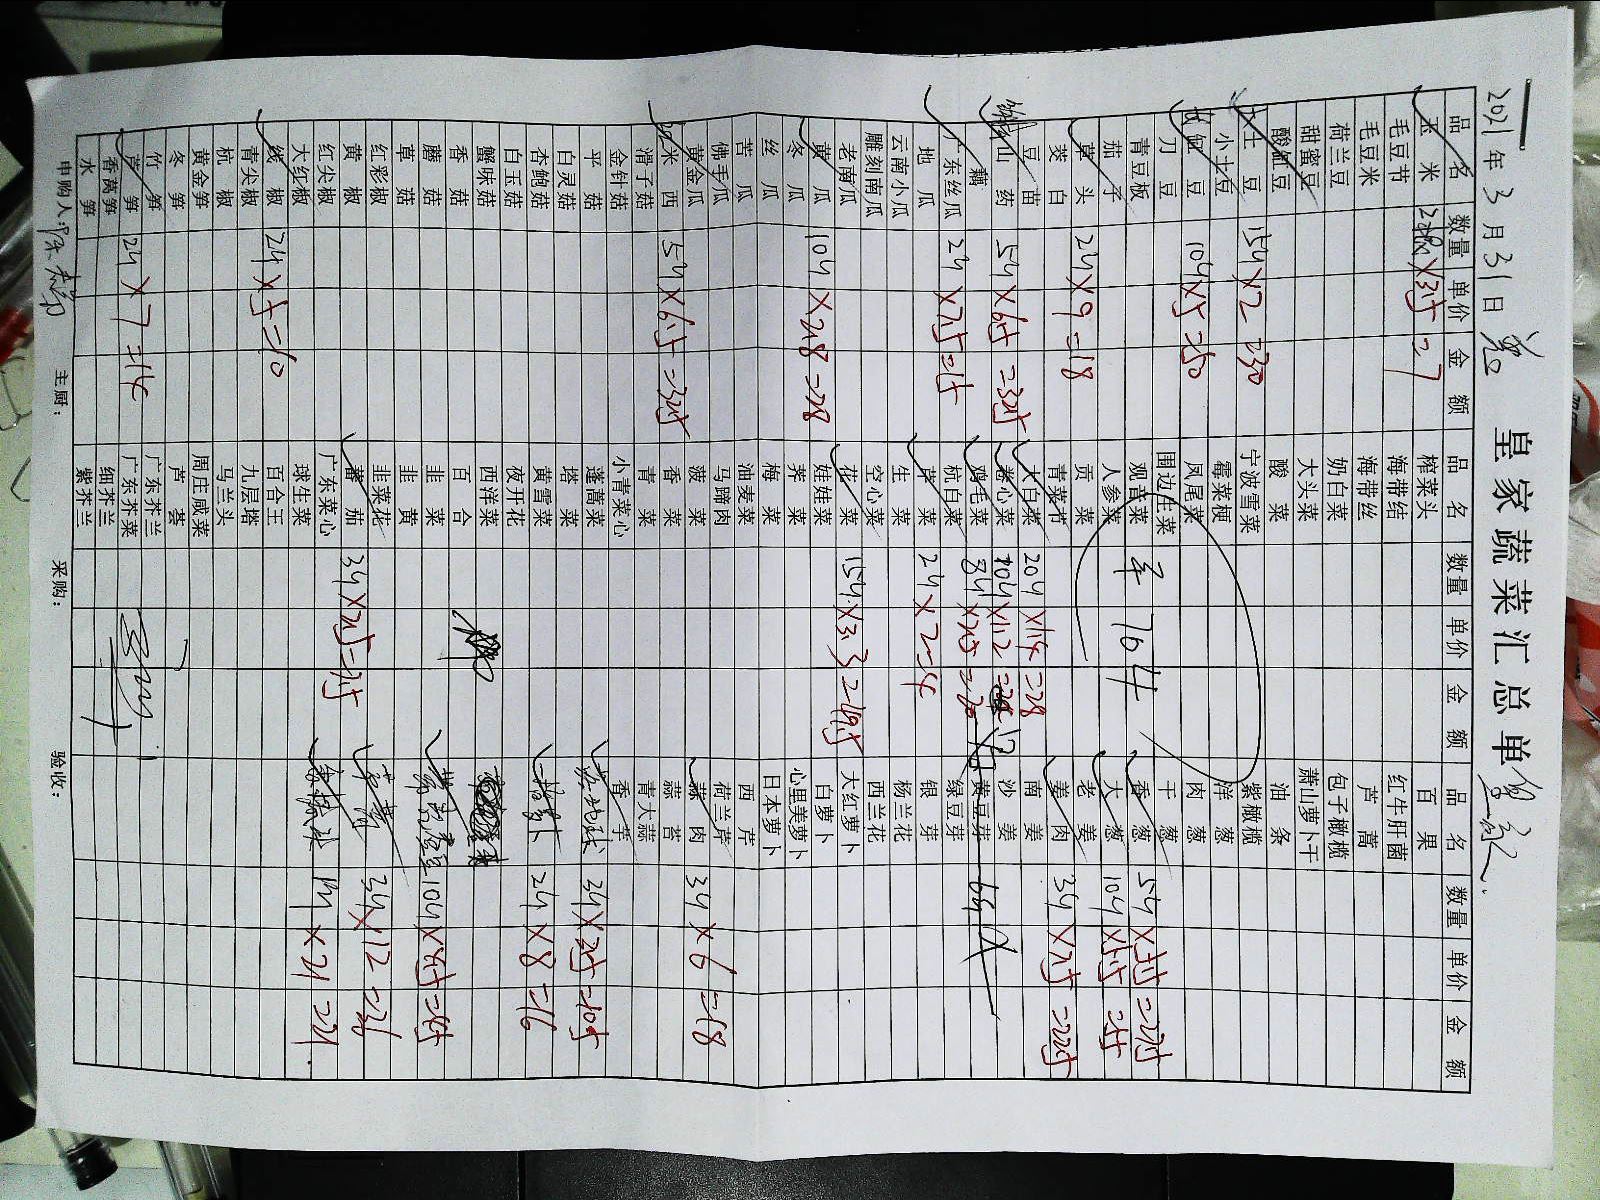 皇家蔬菜汇总单
2021年3月31日
品名 数量 单价 金额 品名 数量 单价 金额 品名 数量 单价 金额
玉米 ×3.5=7 榨菜头 百果
毛豆节 海带结 红牛肝菌
毛豆米 海带丝 芦蒿
荷兰豆 奶白菜 包子橄榄
甜蜜豆 大头菜 萧山萝卜干
酸缸豆 酸菜 油条
土豆 15斤×2=30 宁波雪菜 紫橄榄
小土豆 霉菜梗 洋葱
豇豆 10斤×5=50 凤尾菜 肉葱
刀豆 围边生菜 干葱
青豆板 观音菜 香葱 5斤
茄子 人参菜 大葱 10斤
黄头 2斤×9=18 贡菜 老姜
茭白 青菜节 姜肉 3斤×7.5=22.5
豆苗 大白菜 20斤×1.4=28 南姜
山药 5斤×6.5=32.5 卷心菜 10斤×1.2 沙姜
藕 鸡毛菜 8斤×2.5=20 黄豆芽 6斤
广东丝瓜 2斤×7.5=15 杭白菜 绿豆芽
地瓜 芹菜 2斤×2=4 银芽
云南小瓜 生菜 杨兰花
雕刻南瓜 空心菜 西兰花
老南瓜 花菜 15斤×3.3 大红萝卜
黄瓜 10斤×2.8=28 娃娃菜 白萝卜
冬瓜 荠菜 心里美萝卜
丝瓜 梅菜 日本萝卜
苦瓜 油麦菜 西芹
佛手瓜 马蹄肉 荷兰芹
黄金瓜 菠菜 蒜肉 3斤×6=18
西 5斤×6.5=32.5 香菜 蒜苔
滑子菇 青菜 青大蒜
金针菇 小青菜心 香芋
平菇 蓬蒿菜 3斤×3.5=10.5
白灵菇 塔菜
杏鲍菇 黄雪菜 2斤×8=16
白玉菇 夜开花
蟹味菇 西洋菜
香菇 百合
蘑菇 韭菜 10斤
草菇 韭黄
红彩椒 韭菜花 3斤×12=36
黄椒 蕃茄 3斤×2.5=7.5
红尖椒 广东菜心 1斤×21=21
大红椒 球生菜
线椒 2斤×5=10 百合王
青尖椒 九层塔
杭椒 马兰头
黄金笋 周庄咸菜
冬笋 芦荟
竹笋 广东芥兰
莴笋 2斤×7=14 广东芥菜
香莴笋 细芥兰
水笋 紫芥兰
申购人: 主厨: 采购: 验收: